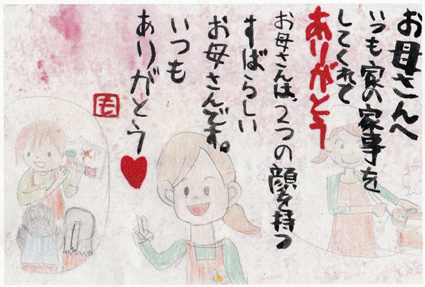 お母さんへ
いつも家の家事を
してくれて
ありがとう
お母さんは、2つの顔を持つ
すばらしい
お母さんですね。
いつも
ありがとう♥